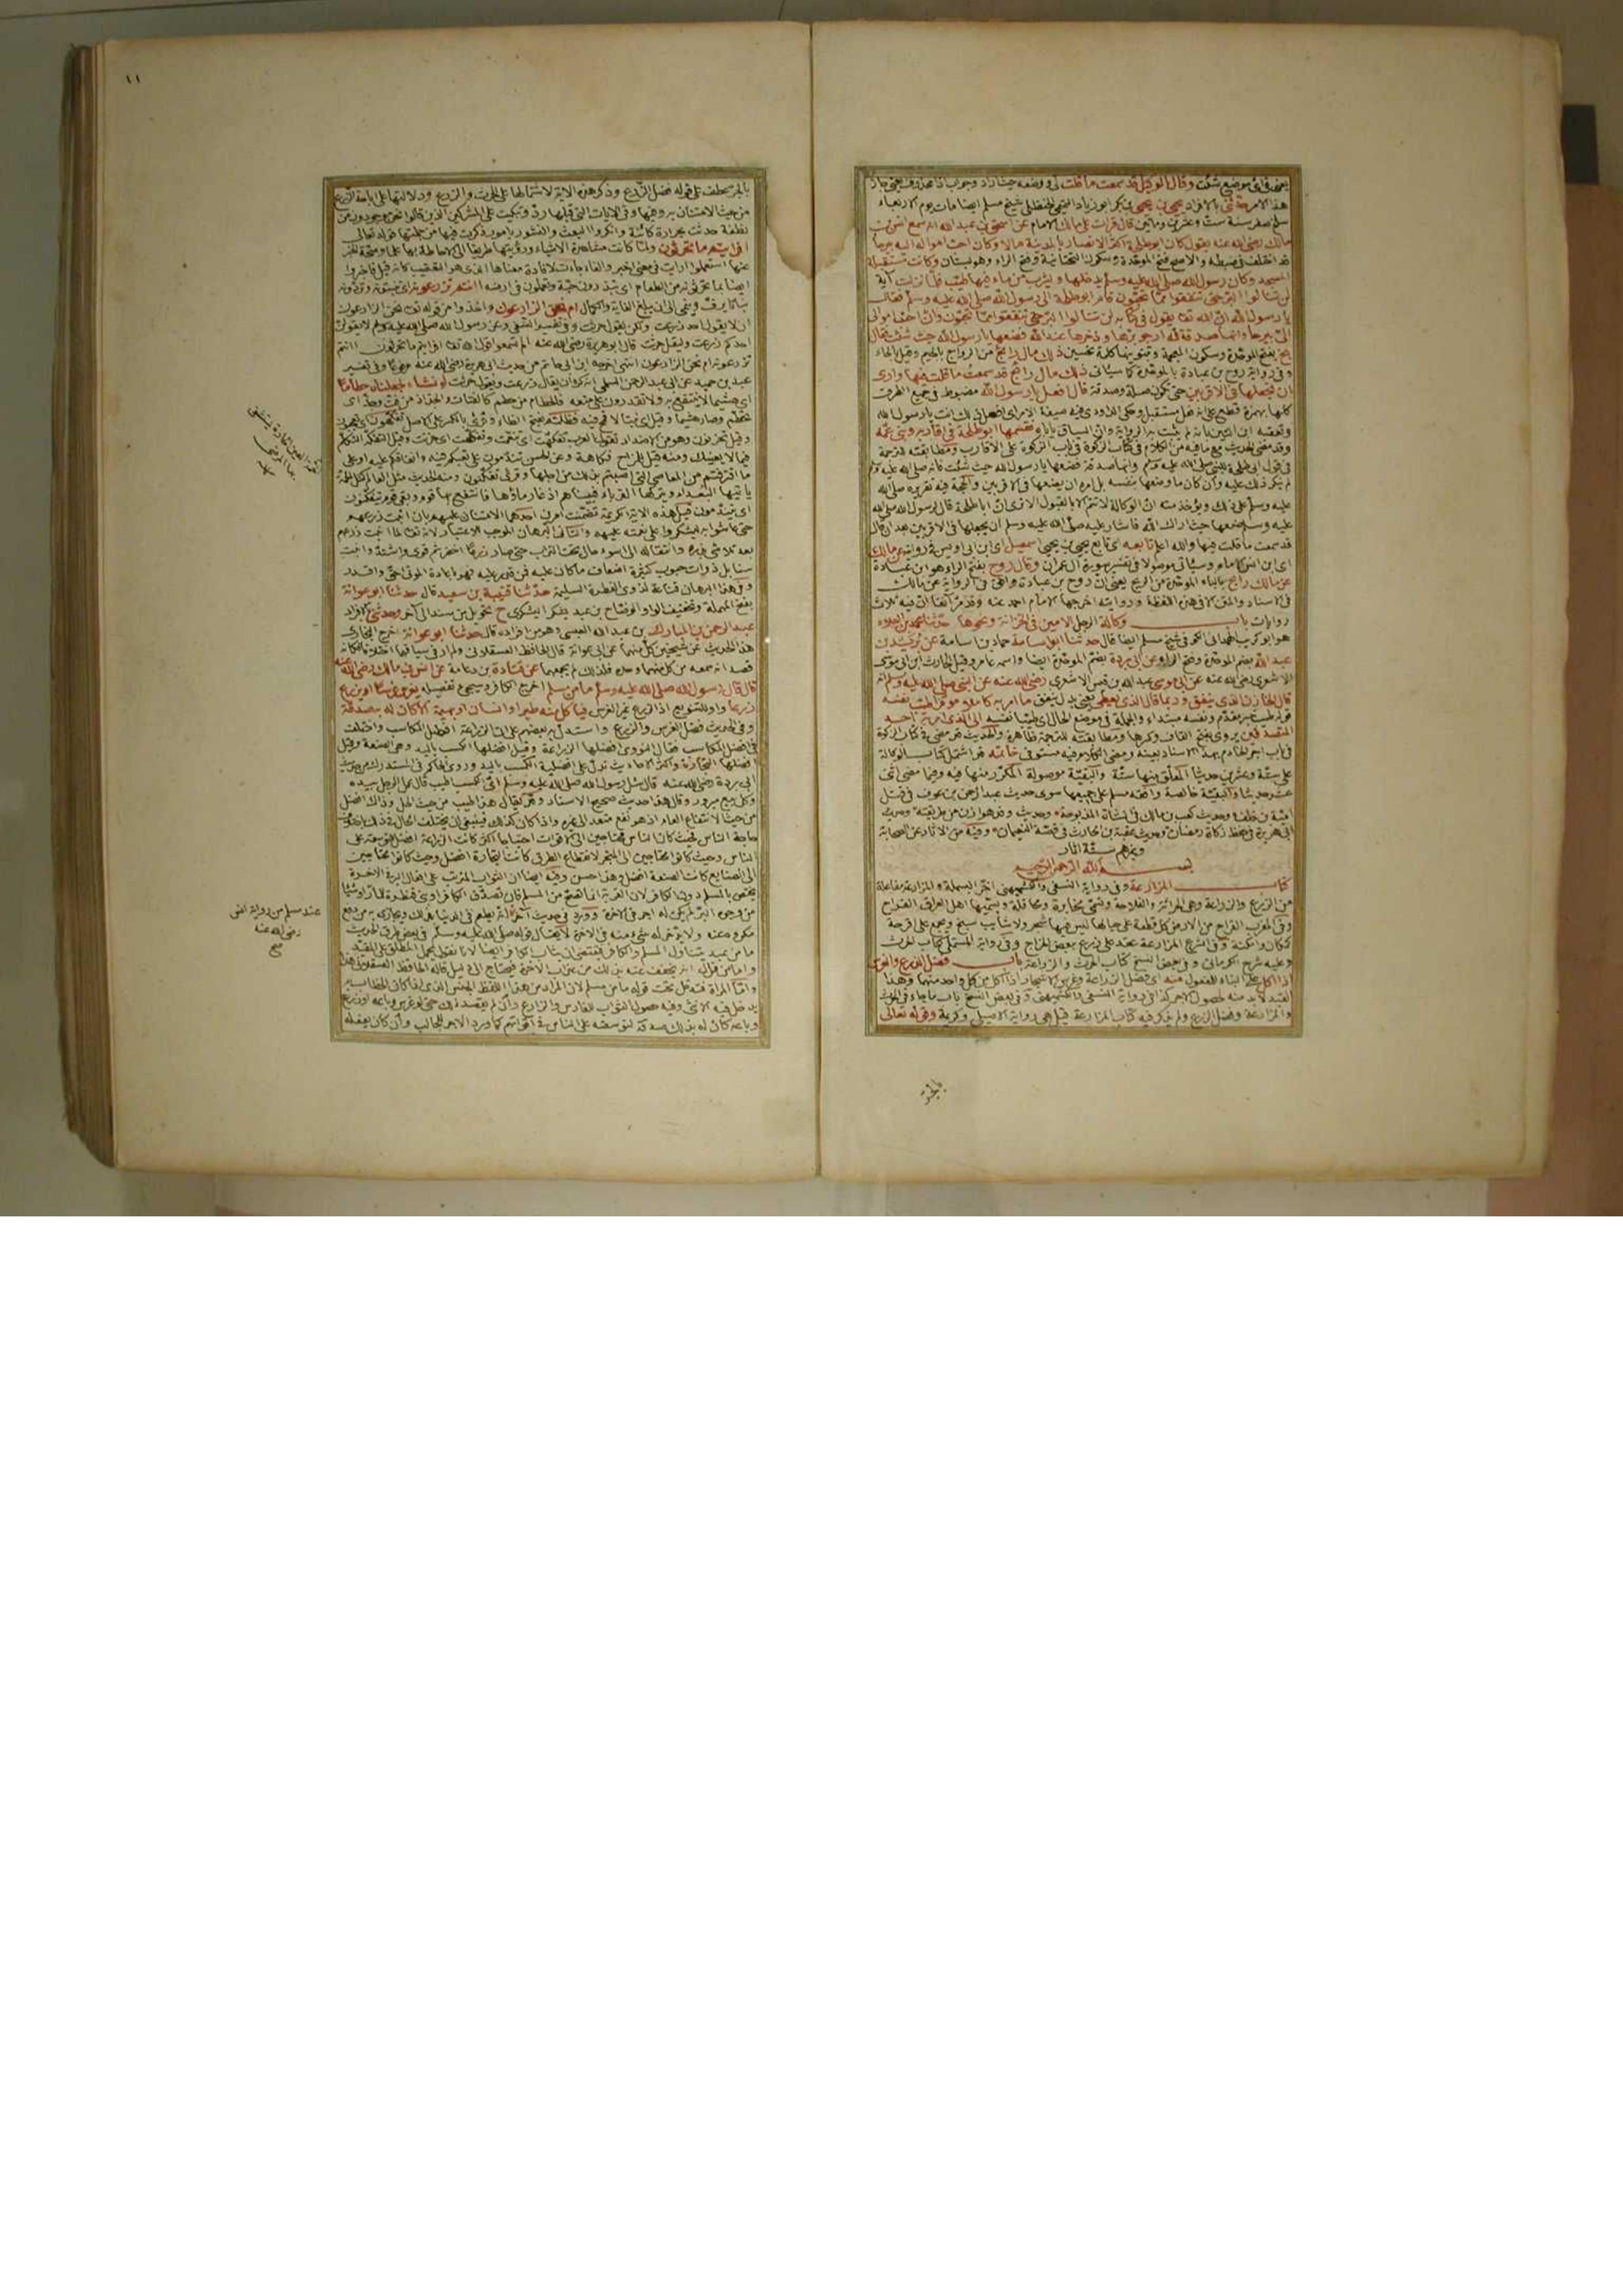 يعني في أي موضع شئت وقال الوكيل قد سمعت ما قلت أي ووضعه حيث أراد وجواب إذا محذوف يعني جاز
هذا الأمر حدثني بالإفراد يحيى بن يحيى بن بكر أبو زكريا التميمي الحنظلي شيخ مسلم أيضا مات يوم الأربعاء
سلخ صفر سنة ست وعشرين ومائتين قال قرأت على مالك الإمام عن إسحق بن عبد الله أنه سمع أنس بن
مالك رضي الله عنه يقول كان أبو طلحة أكثر الأنصار بالمدينة مالا وكان أحب أمواله إليه بيرحا
قد اختلف في ضبطه والأصح فتح الموحدة وسكون التحتانية وفتح الراء وهو بستان وكانت مستقبلة
المسجد وكان رسول الله صلى الله عليه وسلم يدخلها ويشرب من ماء فيها طيب فلما نزلت آية
لن تنالوا البر حتى تنفقوا مما تحبون قام أبو طلحة إلى رسول الله صلى الله عليه وسلم فقال
يا رسول الله إن الله تعالى يقول في كتابه لن تنالوا البر حتى تنفقوا مما تحبون وإن أحب أموالي
إلي بيرحا وإنها صدقة لله أرجو برها وذخرها عند الله فضعها يا رسول الله حيث شئت فقال
بخ بفتح الموحدة وسكون المعجمة وتنوينها كلمة تحسين ذلك مال رائج من الرواج بالجيم وقيل بالحاء
وفي رواية روح بن عبادة بالموحدة كما سيأتي ذلك مال رائج قد سمعت ما قلت فيها وأرى
أن تجعلها في الأقربين حتى تكون صلة وصدقة قال أفعل يا رسول الله مضبوط في جميع الطرق
كلها بهمزة قطع على أنه فعل مستقبل وحكى الداودي فيه صيغة الأمر أي افعل ذلك أنت يا رسول الله
وتعقبه ابن التين بأنه لم يثبت به الرواية وأن السياق يأباه فقسمها أبو طلحة في أقاربه وبني عمه
وقد مضى الحديث مع ما فيه من الكلام في كتاب الزكوة في باب الزكوة على الأقارب ومطابقته للترجمة
في قول أبي طلحة للنبي صلى الله عليه وسلم وإنها صدقة فضعها يا رسول الله حيث شئت فإنه صلى الله عليه وسلم
لم ينكر ذلك عليه وإن كان ما وضعها بنفسه بل أمره أن يضعها في الأقربين والحجة فيه تقريره صلى الله
عليه وسلم على ذلك ويؤخذ منه أن الوكالة لا تتم إلا بالقبول ألا ترى أن أبا طلحة قال لرسول الله صلى الله
عليه وسلم ضعها حيث أراك الله فأشار عليه صلى الله عليه وسلم أن يجعلها في الأقربين بعد أن قال
قد سمعت ما قلت فيها والله أعلم تابعه أي تابع يحيى بن يحيى إسمعيل أي ابن أبي أويس في روايته عن مالك
أي ابن أنس الإمام وسيأتي موصولا في تفسير سورة آل عمران وقال روح بفتح الراء هو ابن عبادة
عن مالك رابح بالباء الموحدة من الربح يعني أن روح بن عبادة وافق في الرواية عن مالك
في الإسناد والمتن إلا في هذه اللفظة وروايته أخرجها الإمام أحمد عنه وقد مر آنفا أن فيه ثلاث
روايات باب وكالة الرجل الأمين في الخزانة ونحوها حدثنا محمد بن العلاء
هو أبو كريب الهمداني الكوفي شيخ مسلم أيضا قال حدثنا أبو أسامة حماد بن أسامة عن بريد بن
عبد الله بضم الموحدة وفتح الراء وعن أبي بردة بضم الموحدة أيضا واسمه عامر وقيل الحارث ابن أبي موسى
الأشعري رضي الله عنه عن أبي موسى عبد الله بن قيس الأشعري رضي الله عنه عن النبي صلى الله عليه وسلم أنه
قال الخازن الذي ينفق وربما قال الذي يعطي يعني بدل ينفق ما أمر به كاملا موفرا طيب نفسه
قوله طيب خبر مقدم ونفسه مبتداء والجملة في موضع الحال أي طيبا نفسه إلى الذي أمر به أحد
المتصدقين يروى بفتح القاف وكسرها ومطابقته للترجمة ظاهرة والحديث قد مضى في كتاب الزكوة
في باب أجر الخادم بهذا الإسناد بعينه ومضى الكلام فيه مستوفى خاتمة قد اشتمل كتاب الوكالة
على ستة وعشرين حديثا المعلق منها ستة والبقية موصولة المكرر منها فيه وفيما مضى اثنى
عشر حديثا والبقية خالصة وافقه مسلم على جميعها سوى حديث عبد الرحمن بن عوف في قتل
أمية بن خلف وحديث كعب بن مالك في الشاة المذبوحة وحديث وفد هوازن من طريقيه وحديث
أبي هريرة في حفظ زكاة رمضان وحديث عقبة بن الحارث في قصة النعيمان وفيه من الآثار عن الصحابة
وغيرهم ستة آثار
بسم الله الرحمن الرحيم
كتاب المزارعة وفي رواية النسفي والكشميهني أخر البسملة والمزارعة مفاعلة
من الزرع والزراعة وهي الحراثة والفلاحة وتسمى مخابرة ومحاقلة ويسميها أهل العراق القراح
وفي المغرب القراح من الأرض كل قطعة على حيالها ليس فيها شجر ولا شائب سبخ ويجمع على أقرحة
كمكان وأمكنة وفي الشرع المزارعة عقد على زرع ببعض الخارج وفي رواية المستملي كتاب الحرث
وعليه شرح الكرماني وفي بعض النسخ كتاب الحرث والزراعة باب فضل الزرع والغرس
إذا أكل على البناء للمفعول منه أي فضل الزراعة وغرس الأشجار إذا أكل من كل واحد منهما وهذا
القيد لا بد منه لحصول الأجر كذا في رواية النسفي والكشميهني وفي بعض النسخ باب ما جاء في الحرث
والمزارعة وفضل الزرع ولم يذكر فيه كتاب المزارعة قيل هي رواية الأصيلي وكريمة وقوله تعالى
بالجر
١١
بالجر عطف على قوله فضل الزرع وذكر هذه الآية لاشتمالها على الحرث والزرع ودلالتها على إباحة الزرع
من حيث الامتنان به وفيها وفي الآيات التي قبلها رد وتبكيت على المشركين الذين قالوا نحن موجودون من
نطفة حدثت بحرارة كائنة وأنكروا البعث والنشور بأمور ذكرت فيها من جملتها قوله تعالى
أفرأيتم ما تحرثون ولما كانت مشاهدة الأشياء ورؤيتها طريقا إلى الإحاطة بها علما وصحة الخبر
عنها استعملوا أرأيت في معنى أخبر والفاء جاءت لإفادة معناها الذي هو التعقيب كأنه قيل فأخبروا
أيضا بما تحرثونه من الطعام أي تبذرون حبه وتعملون في أرضه أأنتم تزرعونه أي تنبتونه وتردونه
نباتا يرف وينمي إلى أن يبلغ الغاية والكمال أم نحن الزارعون وأخذوا من قوله تعالى نحن الزارعون
أن لا يقول أحد زرعت ولكن يقول حرثت وفي تفسير النسفي وعن رسول الله صلى الله عليه وسلم لا يقولن
أحدكم زرعت وليقل حرثت قال أبو هريرة رضي الله عنه ألم تسمعوا قول الله تعالى أفرأيتم ما تحرثون أأنتم
تزرعونه أم نحن الزارعون انتهى أخرجه ابن أبي حاتم من حديث أبي هريرة رضي الله عنه مرفوعا وفي تفسير
عبد بن حميد عن أبي عبد الرحمن السلمي أنه كره أن يقال زرعت ويقول حرثت لو نشاء لجعلناه حطاما
أي هشيما لا ينتفع به ولا تقدرون على منعه والحطام من حطم كالفتات والجذاذ من فت وجذ أي
تحطم وصار هشيما وقيل أي نبتا لا قمح فيه فظلتم بفتح الظاء وقرئ بالكسر على الأصل تفكهون أي تعجبون
وقيل تحزنون وهو من الأضداد تقول العرب تفكهت أي تنعمت وتفكهت أي حزنت وقيل التفكه التكلم
فيما لا يعنيك ومنه قيل للمزاح فكاهة وعن الحسن تندمون على تعبكم فيه وإنفاقكم عليه أو على
ما اقترفتم من المعاصي التي أصبتم بذلك من أجلها وقرئ تفكنون ومنه الحديث مثل العالم كمثل الحمة
يأتيها البعداء ويتركها القرباء فبينا هم إذ غار ماؤها فانتفع بها قوم وبقي قوم يتفكنون
أي يتندمون قيل هذه الآية الكريمة تضمنت أمرين أحدهما الامتنان عليهم بأن أنبت زرعهم
حتى عاشوا به ليشكروا على نعمته عليهم والثاني البرهان الموجب للاعتبار لأنه تعالى لما أنبت زرعهم
بعد تلاشي بذره وانتقاله إلى أسوء حال تحت التراب حتى صار زرعا أخضر ثم قوي واشتد وأنبت
سنابل ذوات حبوب كثيرة أضعاف ما كان عليه فمن قدر عليه فهو بإعادة الموتى أحق وأقدر
وفي هذا البرهان قناعة لذوي الفطرة السليمة حدثنا قتيبة بن سعيد قال حدثنا أبو عوانة
بفتح المهملة وتخفيف الواو الوضاح بن عبد اليشكري ح تحويل من سند إلى آخر وحدثني بالإفراد
عبد الرحمن بن المبارك بن عبد الله العيسي وهو من أفراده قال حدثنا أبو عوانة أخرج البخاري
هذا الحديث عن شيخين كل منهما عن أبي عوانة قال الحافظ العسقلاني ولم أر في سياقهما اختلافا فكأنه
قصد أنه سمعه من كل منهما وحده فلذلك لم يجمعهما عن قتادة بن دعامة عن أنس بن مالك رضي الله عنه
قال قال رسول الله صلى الله عليه وسلم ما من مسلم أخرج الكافر وسيجيء تفصيله يغرس غرسا أو يزرع
زرعا وأو للتنويع إذ الزرع غير الغرس فيأكل منه طير أو إنسان أو بهيمة إلا كان له به صدقة
وفي الحديث فضل الغرس والزرع واستدل به بعضهم على أن الزراعة أفضل المكاسب واختلف
في أفضل المكاسب فقال النووي أفضلها الزراعة وقيل أفضلها الكسب باليد وهي الصنعة وقيل
أفضلها التجارة وأكثر الأحاديث تدل على أفضلية الكسب باليد وروى الحاكم في المستدرك من حديث
أبي بردة رضي الله عنه قال سئل رسول الله صلى الله عليه وسلم أي الكسب أطيب قال عمل الرجل بيده
وكل بيع مبرور وقال هذا حديث صحيح الإسناد وقد يقال هذا أطيب من حيث الحل وذاك أفضل
من حيث الانتفاع العام إذ هو نفع متعد إلى غيره وإذا كان كذلك فينبغي أن يختلف الحال في ذلك باختلاف
حاجة الناس فحيث كان الناس محتاجين إلى الأقوات احتياجا أكثر كانت الزراعة أفضل للتوسعة على
الناس وحيث كانوا محتاجين إلى المتجر لانقطاع الطرق كانت التجارة أفضل وحيث كانوا محتاجين
إلى الصنايع كانت الصنعة أفضل وهذا حسن وفيه أيضا أن الثواب المترتب على أفعال البر في الآخرة
يختص بالمسلم دون الكافر لأن القربة إنما تصح من المسلم فإن تصدق الكافر أو بنى قنطرة للمارة أو شيئا
من وجوه البر لم يكن له أجر في الآخرة وورد في حديث آخر أنه يطعم في الدنيا بذلك ويجازى به من دفع
مكروه عنه ولا يدخر له شيء منه في الآخرة لا يقال قوله صلى الله عليه وسلم في بعض طرق الحديث
ما من عبد يتناول المسلم والكافر فيقتضي أن يثاب الكافر أيضا لأنا نقول يحمل المطلق على المقيد
وأما من قال إنه يخفف عنه بذلك من عذاب الآخرة فيحتاج إلى دليل قاله الحافظ العسقلاني هذا
وأما المرأة فتدخل تحت قوله ما من مسلم لأن المراد من هذا اللفظ الجنس الذي إذا كان الخطاب به
يدخل فيه الأنثى وفيه حصول الثواب للغارس والزارع وإن لم يقصد ذلك حتى لو غرس وباعه أو زرع
وباعه كان له بذلك صدقة لتوسعته على الناس في أقواتهم كما ورد الأجر للجالب وإن كان يفعله
عند مسلم من رواية أنس
رضي الله عنه
صح